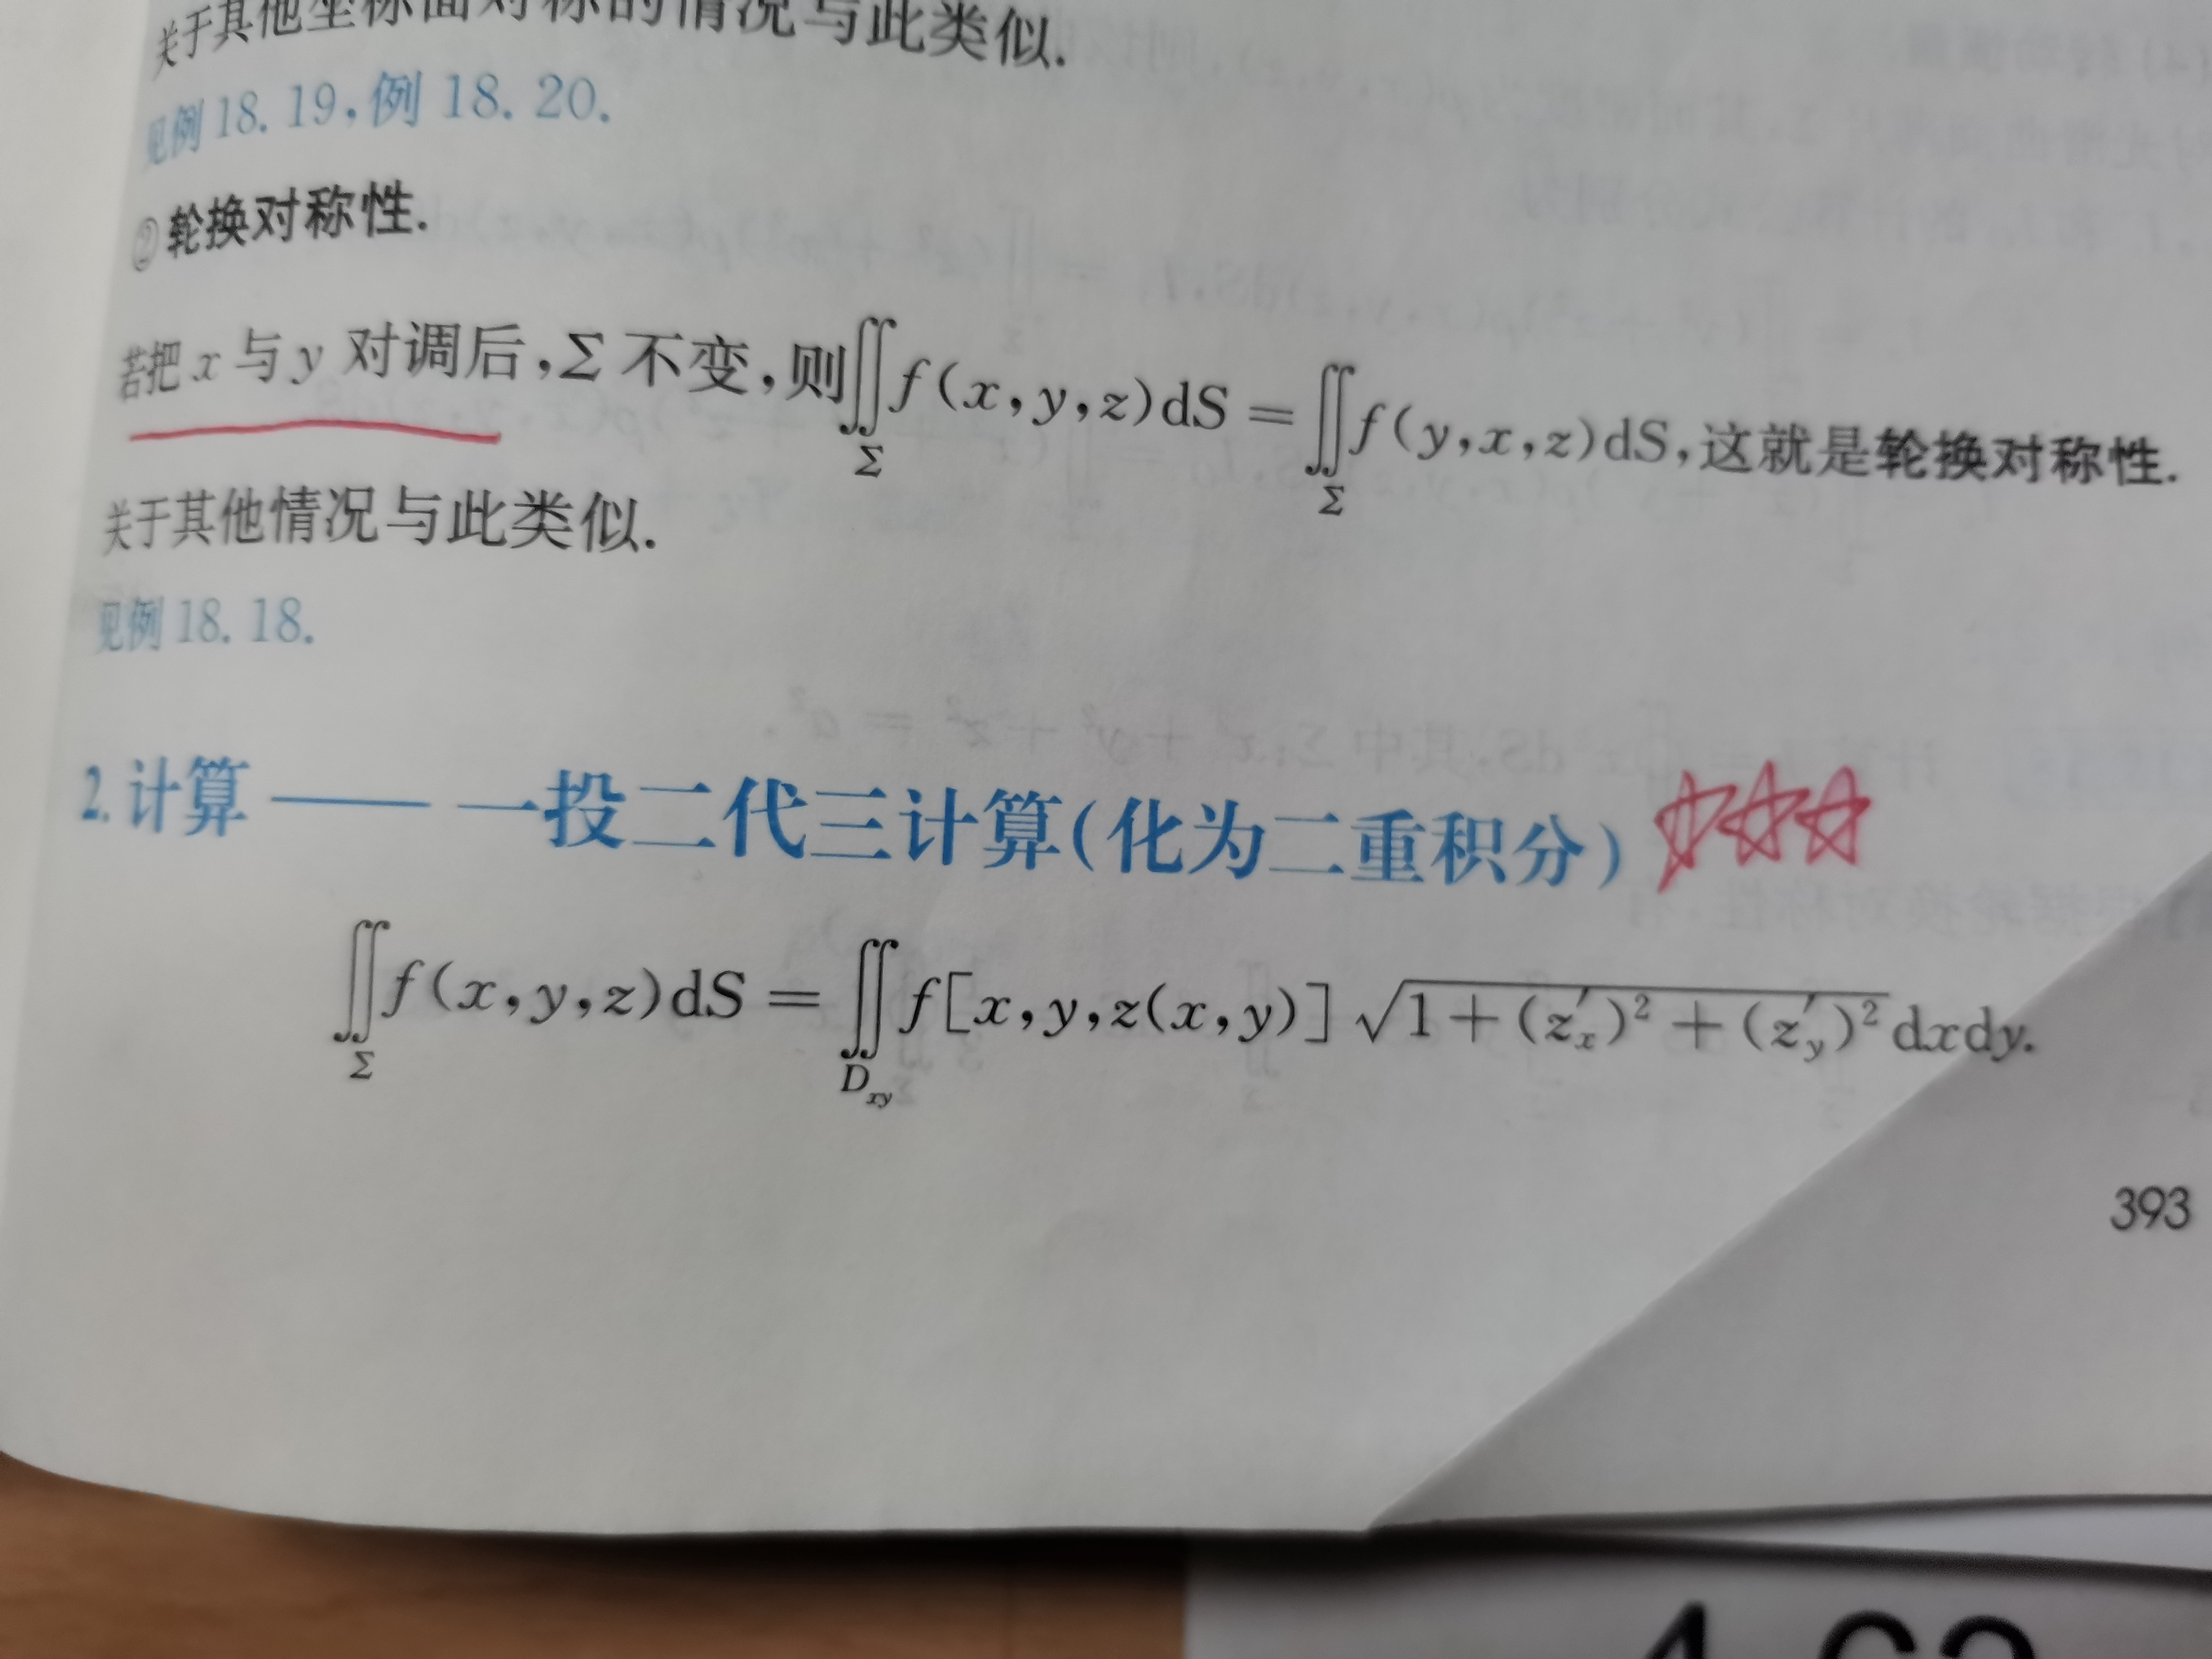 关于其他坐标面对称的情况与此类似.
见例 18.19,例 18.20.
②轮换对称性.
若把 x 与 y 对调后,Σ 不变,则∬_Σ f(x,y,z)dS = ∬_Σ f(y,x,z)dS,这就是轮换对称性.
关于其他情况与此类似.
见例 18.18.
2.计算 —— 一投二代三计算(化为二重积分)
∬_Σ f(x,y,z)dS = ∬_{D_{xy}} f[x,y,z(x,y)] √(1+(z'_x)²+(z'_y)²) dxdy.
393